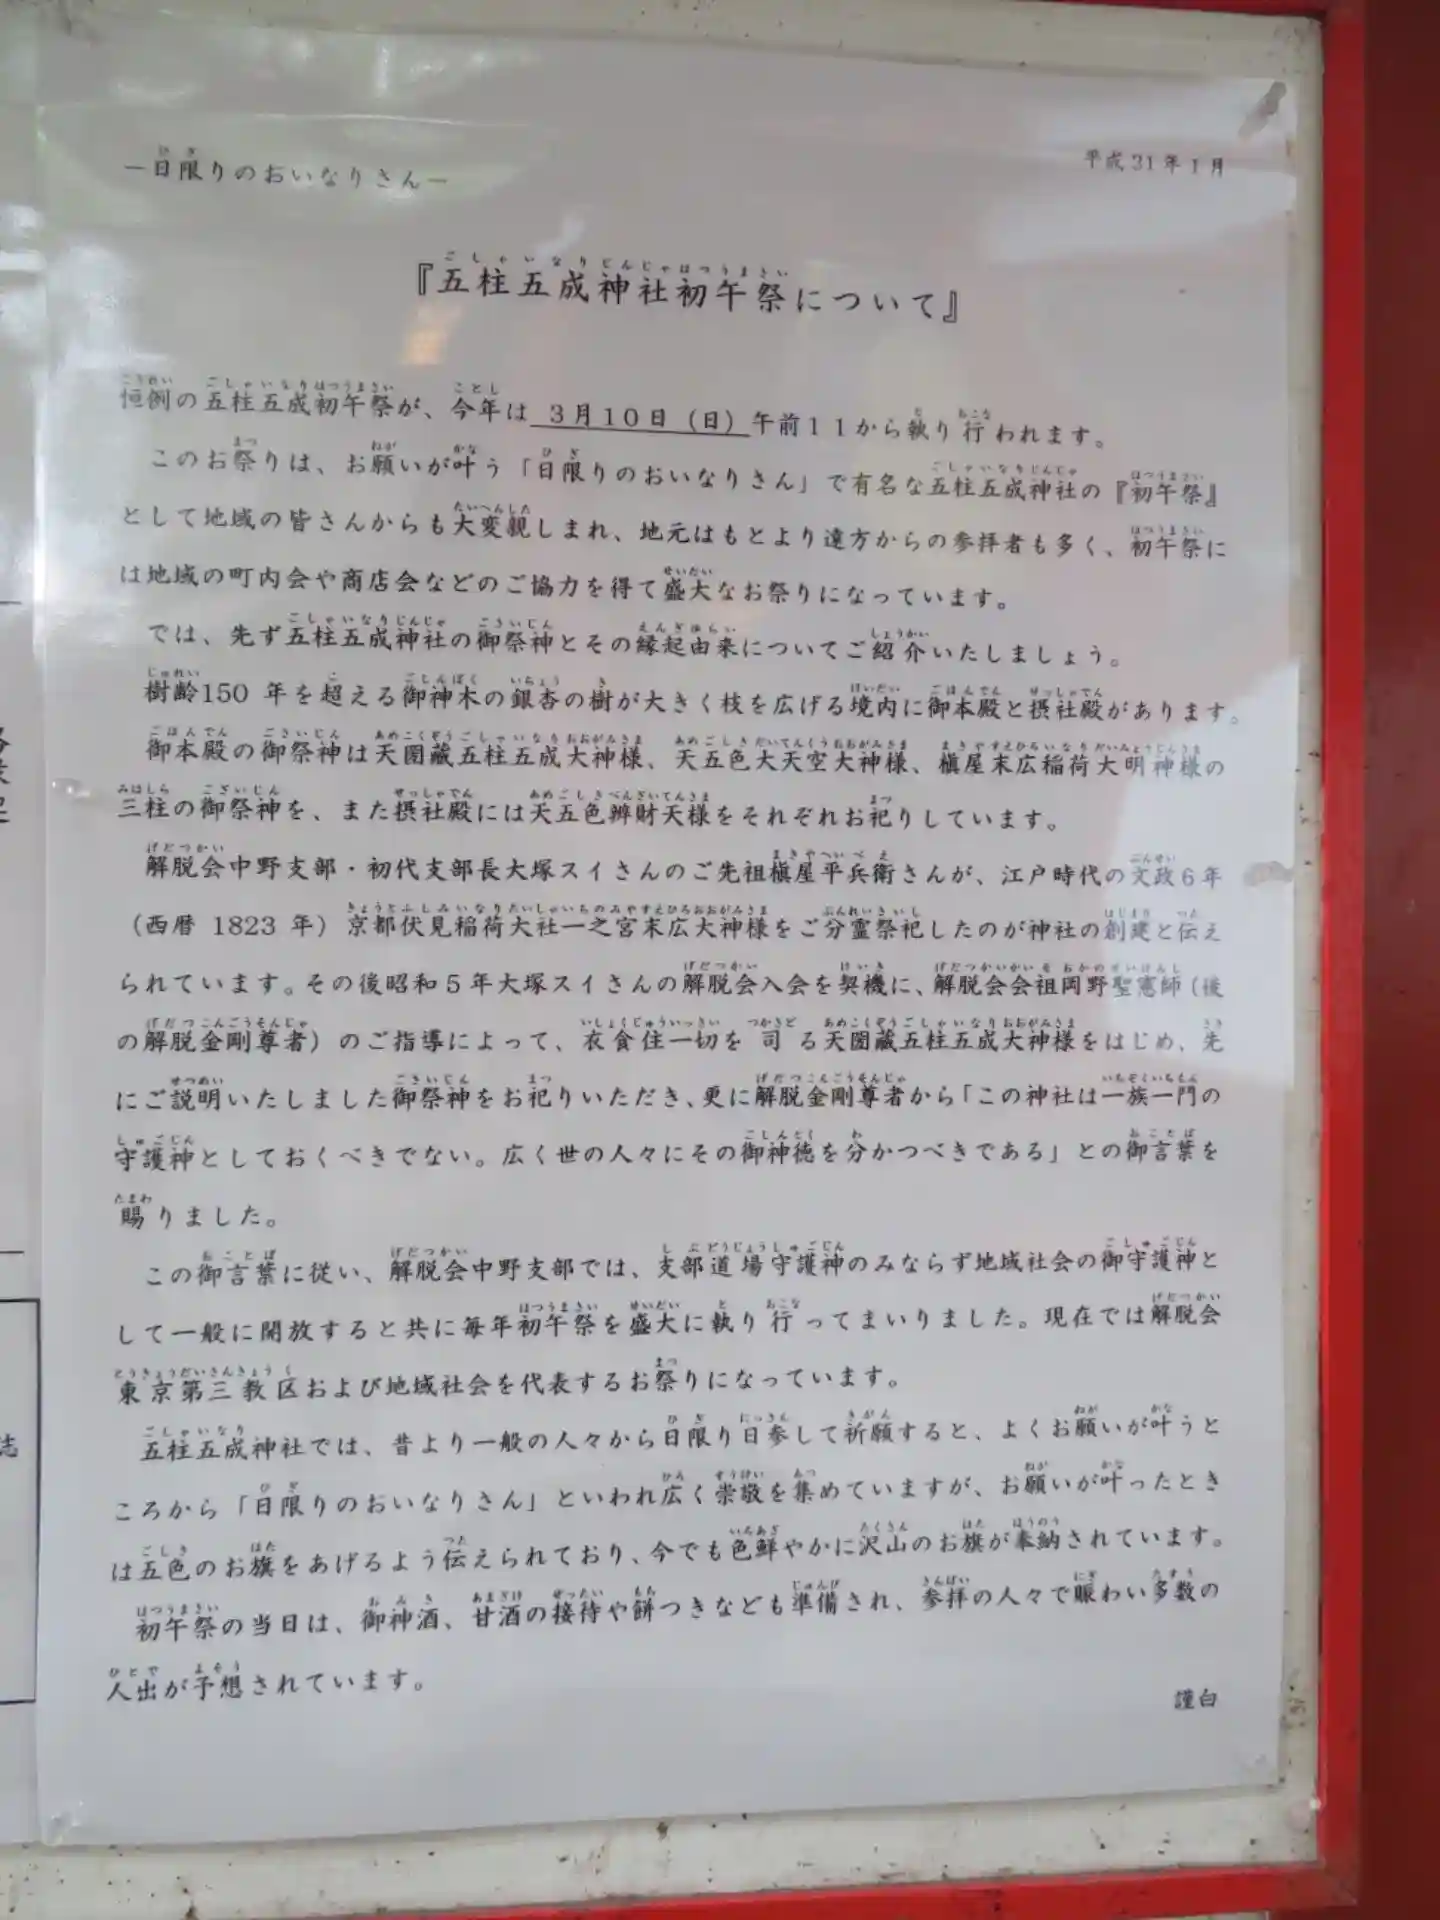 －日限りのおいなりさん－
平成31年1月
『五柱五成神社初午祭について』
恒例の五柱五成初午祭が、今年は 3月10日（日）午前11から執り行われます。
このお祭りは、お願いが叶う「日限りのおいなりさん」で有名な五柱五成神社の『初午祭』
として地域の皆さんからも大変親しまれ、地元はもとより遠方からの参拝者も多く、初午祭に
は地域の町内会や商店会などのご協力を得て盛大なお祭りになっています。
では、先ず五柱五成神社の御祭神とその縁起由来についてご紹介いたしましょう。
樹齢150 年を超える御神木の銀杏の樹が大きく枝を広げる境内に御本殿と摂社殿があります。
御本殿の御祭神は天圀蔵五柱五成大神様、天五色大天空大神様、槇屋末広稲荷大明神様の
三柱の御祭神を、また摂社殿には天五色辨財天様をそれぞれお祀りしています。
解脱会中野支部・初代支部長大塚スイさんのご先祖槇屋平兵衛さんが、江戸時代の文政6年
（西暦 1823 年）京都伏見稲荷大社一之宮末広大神様をご分霊祭祀したのが神社の創建と伝え
られています。その後昭和5年大塚スイさんの解脱会入会を契機に、解脱会会祖岡野聖憲師（後
の解脱金剛尊者）のご指導によって、衣食住一切を司る天圀蔵五柱五成大神様をはじめ、先
にご説明いたしました御祭神をお祀りいただき、更に解脱金剛尊者から「この神社は一族一門の
守護神としておくべきでない。広く世の人々にその御神徳を分かつべきである」との御言葉を
賜りました。
この御言葉に従い、解脱会中野支部では、支部道場守護神のみならず地域社会の御守護神と
して一般に開放すると共に毎年初午祭を盛大に執り行ってまいりました。現在では解脱会
東京第三教区および地域社会を代表するお祭りになっています。
五柱五成神社では、昔より一般の人々から日限り日参して祈願すると、よくお願いが叶うと
ころから「日限りのおいなりさん」といわれ広く崇敬を集めていますが、お願いが叶ったとき
は五色のお旗をあげるよう伝えられており、今でも色鮮やかに沢山のお旗が奉納されています。
初午祭の当日は、御神酒、甘酒の接待や餅つきなども準備され、参拝の人々で賑わい多数の
人出が予想されています。
謹白
誌